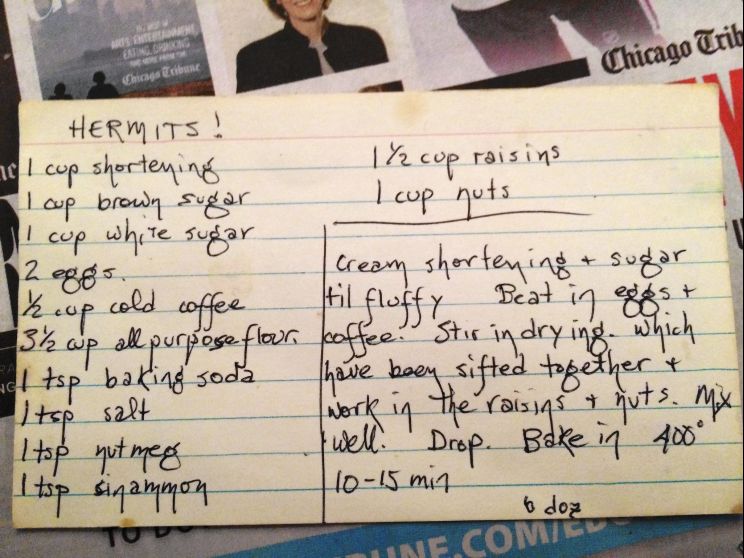 ARTS, ENTERTAINMENT,
EATING, DRINKING
Chicago Tribune
Chicago Trib
HERMITS!
1 cup shortening
1 cup brown sugar
1 cup white sugar
2 eggs.
1/2 cup cold coffee
3 1/2 cup all purpose flour.
1 tsp baking soda
1 tsp salt
1 tsp nutmeg
1 tsp sinammon
1 1/2 cup raisins
1 cup nuts
cream shortening + sugar
til fluffy Beat in eggs +
coffee. Stir in dry ing. which
have been sifted together +
work in the raisins + nuts. Mix
well. Drop. Bake in 400°
10-15 min
6 doz
TO DO
TRIBUNE.COM/